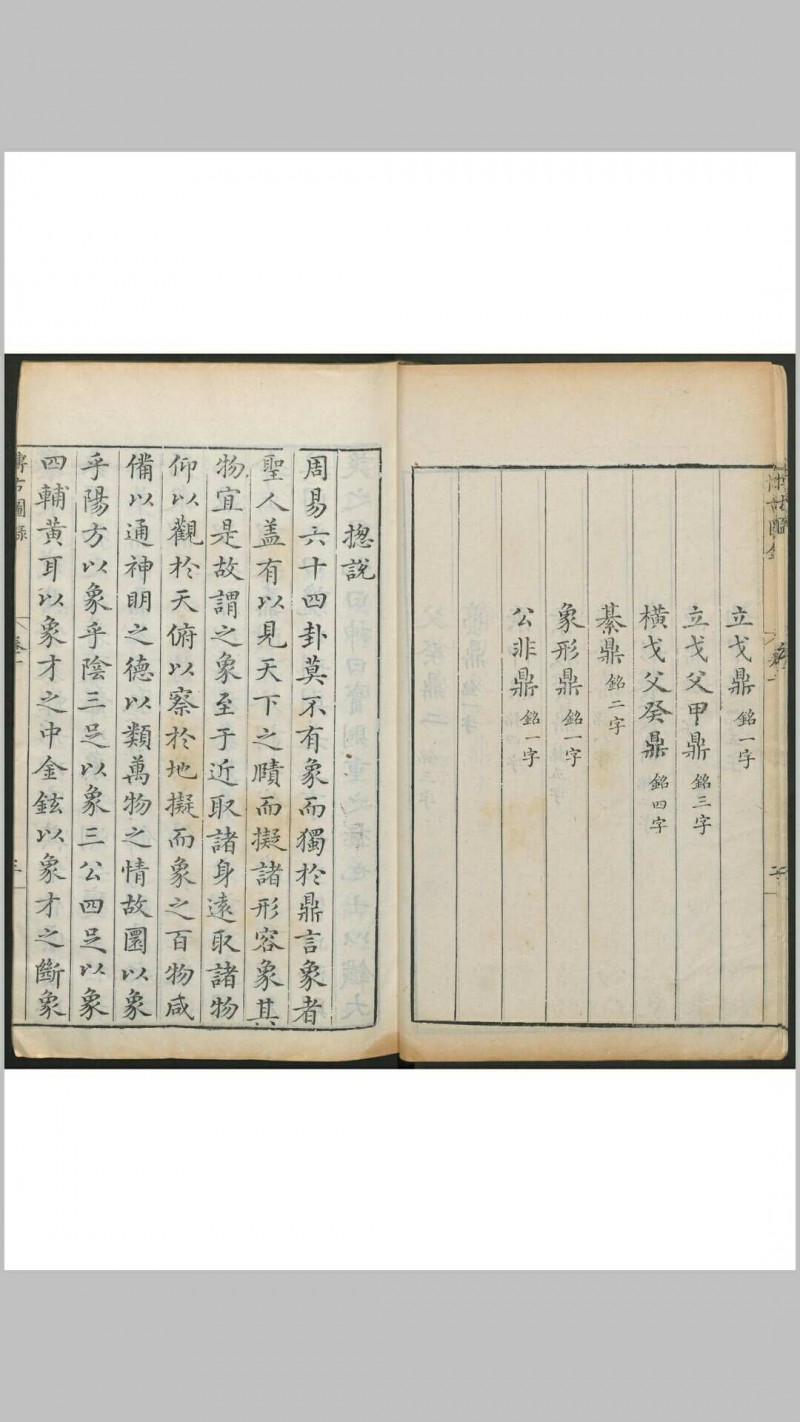 立戈鼎 銘一字
立戈父甲鼎 銘三字
橫戈父癸鼎 銘四字
綦鼎 銘二字
象形鼎 銘一字
公非鼎 銘一字
揔說
周易六十四卦莫不有象而獨於鼎言象者
聖人盖有以見天下之賾而擬諸形容象其
物宜是故謂之象至于近取諸身遠取諸物
仰以觀於天俯以察於地擬而象之百物咸
備以通神明之德以類萬物之情故圜以象
乎陽方以象乎陰三足以象三公四足以象
四輔黄耳以象才之中金鉉以象才之斷象
博古圖錄